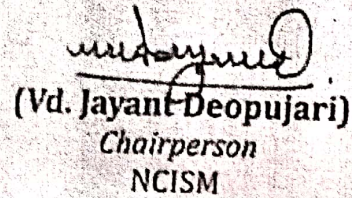 (Vd. Jayant Deopujari)
Chairperson
NCISM